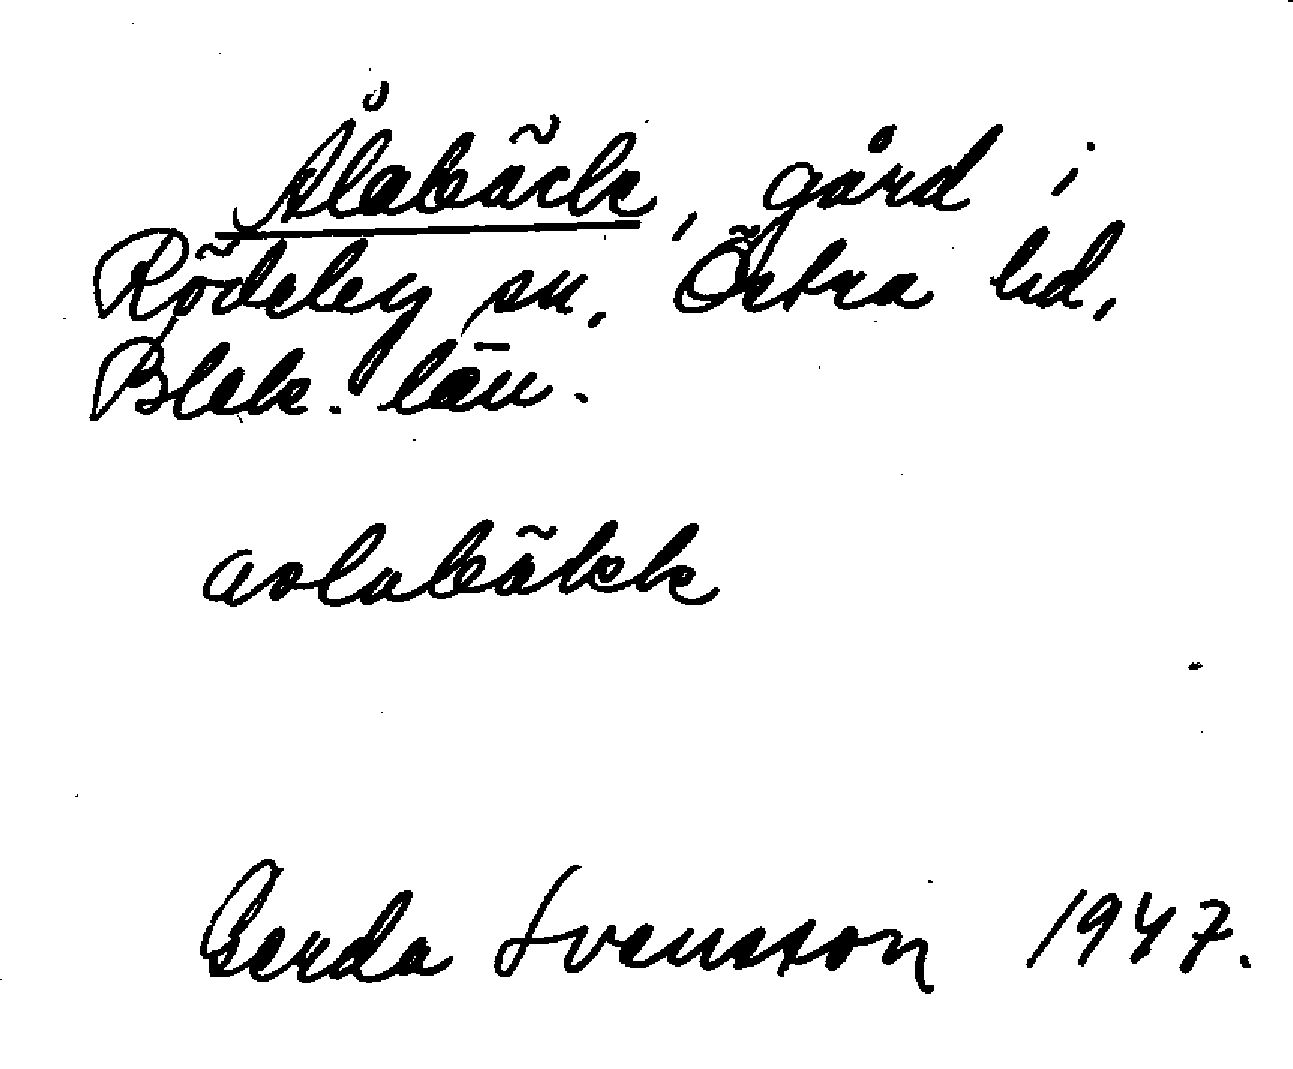 Ålabäck, gård i
Rödeby sn, Östra hd,
Blek. län.
aolabäkk
Gerda Svensson 1947.